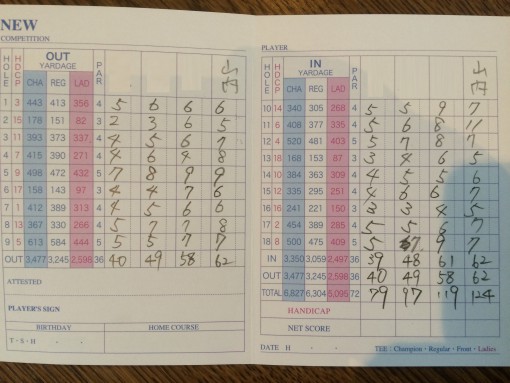 NEW
COMPETITION
HOLE HDCP OUT YARDAGE PAR 山内
CHA REG LAD
1 3 443 413 356 4 5 6 6 6
2 15 178 151 82 3 2 3 6 5
3 11 393 373 337 4 4 5 6 7
4 7 415 390 271 4 4 6 4 8
5 9 498 472 432 5 7 8 9 9
6 17 158 143 97 3 4 4 7 6
7 1 412 389 313 4 4 5 6 6
8 13 367 330 266 4 5 7 7 8
9 5 613 584 444 5 5 5 7 7
OUT 3,477 3,245 2,598 36 40 49 58 62
ATTESTED
PLAYER'S SIGN
BIRTHDAY HOME COURSE
T・S・H ・ ・
PLAYER
HOLE HDCP IN YARDAGE PAR 山内
CHA REG LAD
10 14 340 305 268 4 5 5 9 7
11 6 408 377 335 4 5 6 8 11
12 4 520 481 403 5 5 7 8 7
13 18 168 153 87 3 3 4 6 5
14 10 384 363 309 4 4 5 5 6
15 12 335 295 251 4 4 6 6 7
16 16 241 221 150 3 3 3 4 5
17 2 454 389 285 4 5 5 6 7
18 8 500 475 409 5 5 7 9 7
IN 3,350 3,059 2,497 36 39 48 61 62
OUT 3,477 3,245 2,598 36 40 49 58 62
TOTAL 6,827 6,304 5,095 72 79 97 119 124
HANDICAP
NET SCORE
DATE H ・ ・ TEE : Champion・Regular・Front・Ladies